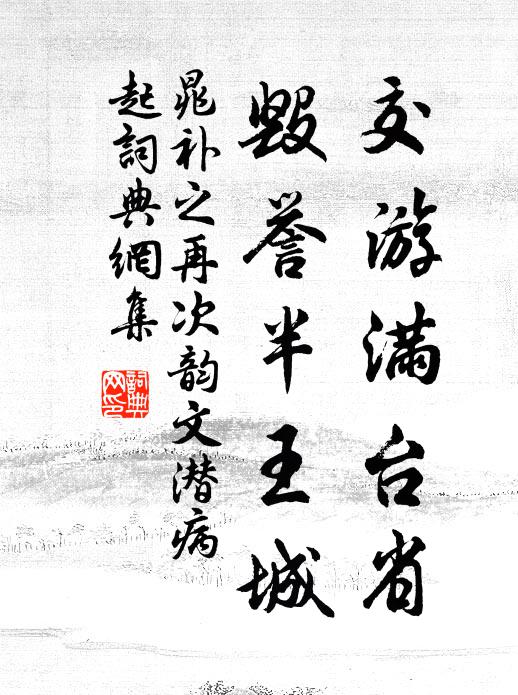 交游满台省
毁誉半王城
晁补之再次韵文潜病
起词典网集
词典网印